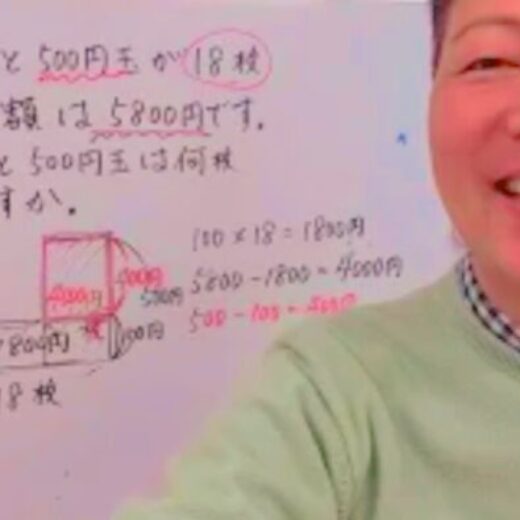 と500円玉が18枚
額は5800円です。
と500円玉は何枚
すか。
100×18=1800円
5800-1800=4000円
500-100=400円
400円
4000円
500円
1800円
100円
18枚